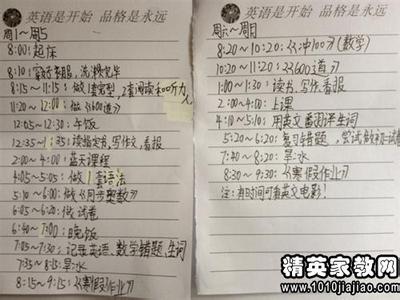 英语是开始 品格是永远
周1~周5
8:00:起床
8:10:穿好衣服,洗漱完毕
8:15~11:15:做1套完型,2套阅读和听力
11:20~12:00:做《600道》
12:05~12:30:午饭
12:35~1:35:读指定书,写作文,看报
2:00~4:00:蓝天课程
4:05~5:05:做1套语法
5:10~6:00:做《同步奥数》
6:05~6:20:做试卷
6:40~7:00:晚饭
7:05~7:30:记录英语、数学错题,生词
7:35~8:15:早:水
8:15~9:15:《寒假作业》
英语是开始 品格是永远
周六~周日
8:20~10:20:《冲100》(数学)
10:20~11:20:《600道》
1:00~1:30:读书,写作,看报
2:00~4:00:上课
4:10~5:10:用英文
5:20~6:20:复习错题,尝试做初一试卷
7:40~8:20:早:水
8:30~9:30:《寒假作业》
注:有时间可看英文电影!
精英家教网
www.1010jiajiao.com